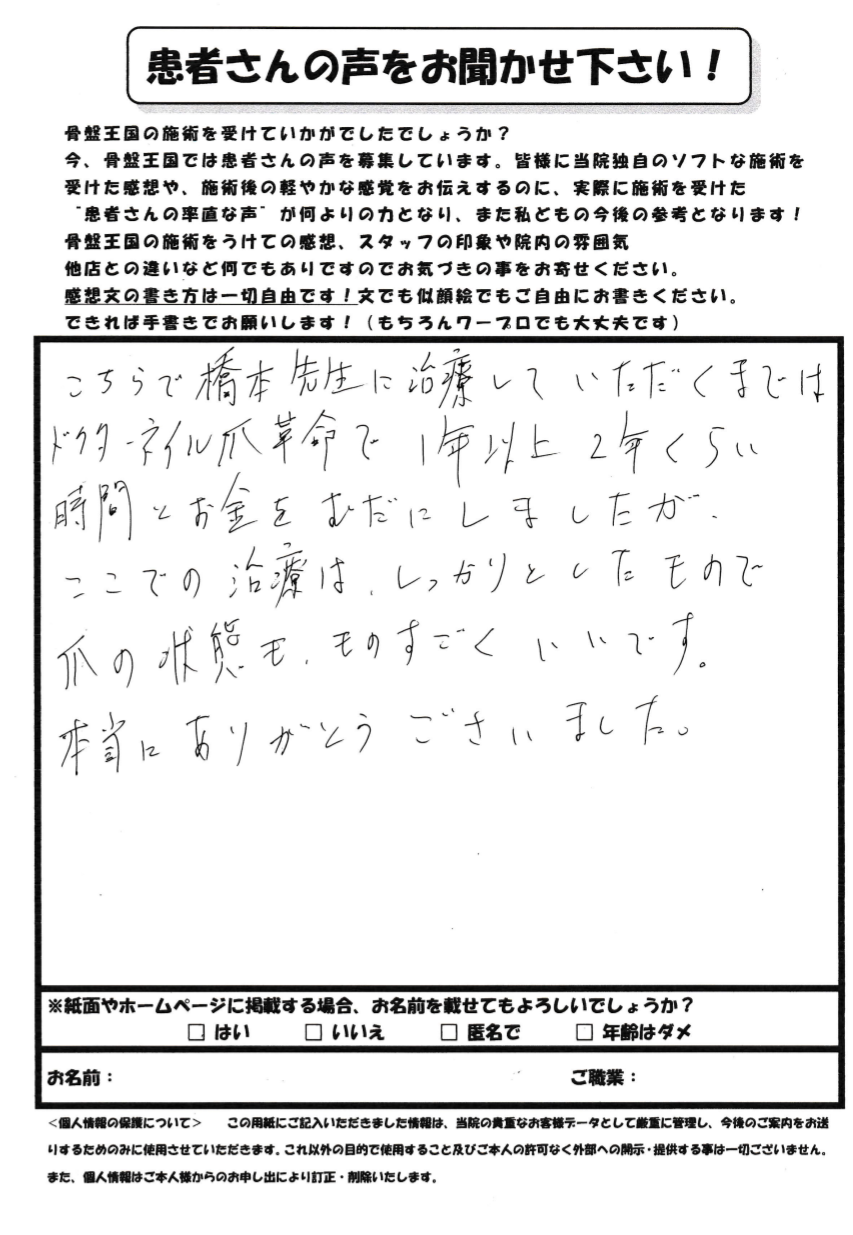 患者さんの声をお聞かせ下さい！
骨盤王国の施術を受けていかがでしたでしょうか？
今、骨盤王国では患者さんの声を募集しています。皆様に当院独自のソフトな施術を
受けた感想や、施術後の軽やかな感覚をお伝えするのに、実際に施術を受けた
"患者さんの率直な声"が何よりの力となり、また私どもの今後の参考となります！
骨盤王国の施術をうけての感想、スタッフの印象や院内の雰囲気
他店との違いなど何でもありですのでお気づきの事をお寄せください。
感想文の書き方は一切自由です！文でも似顔絵でもご自由にお書きください。
できれば手書きでお願いします！（もちろんワープロでも大丈夫です）
こちらで橋本先生に治療していただくまでは
ドクターネイル爪革命で1年以上2年くらい
時間とお金をむだにしましたが、
ここでの治療は、しっかりとしたもので
爪の状態も、ものすごくいいです。
本当にありがとうございました。
※紙面やホームページに掲載する場合、お名前を載せてもよろしいでしょうか？
□ はい □ いいえ □ 匿名で □ 年齢はダメ
お名前： ご職業：
＜個人情報の保護について＞ この用紙にご記入いただきました情報は、当院の貴重なお客様データとして厳重に管理し、今後のご案内をお送
りするためのみに使用させていただきます。これ以外の目的で使用すること及びご本人の許可なく外部への開示・提供する事は一切ございません。
また、個人情報はご本人様からのお申し出により訂正・削除いたします。